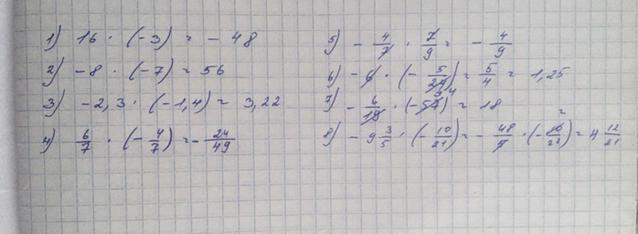 1) 16 · (-3) = - 48
2) -8 · (-7) = 56
3) -2,3 · (-1,4) = 3,22
4) 6/7 · (-4/7) = - 24/49
5) - 4/7 · 7/9 = - 4/9
6) -6 · (- 5/24) = 5/4 = 1,25
7) - 6/18 · (-54) = 18
8) -9 3/5 · (-10/21) = - 48/5 · (-10/21) = 4 12/21